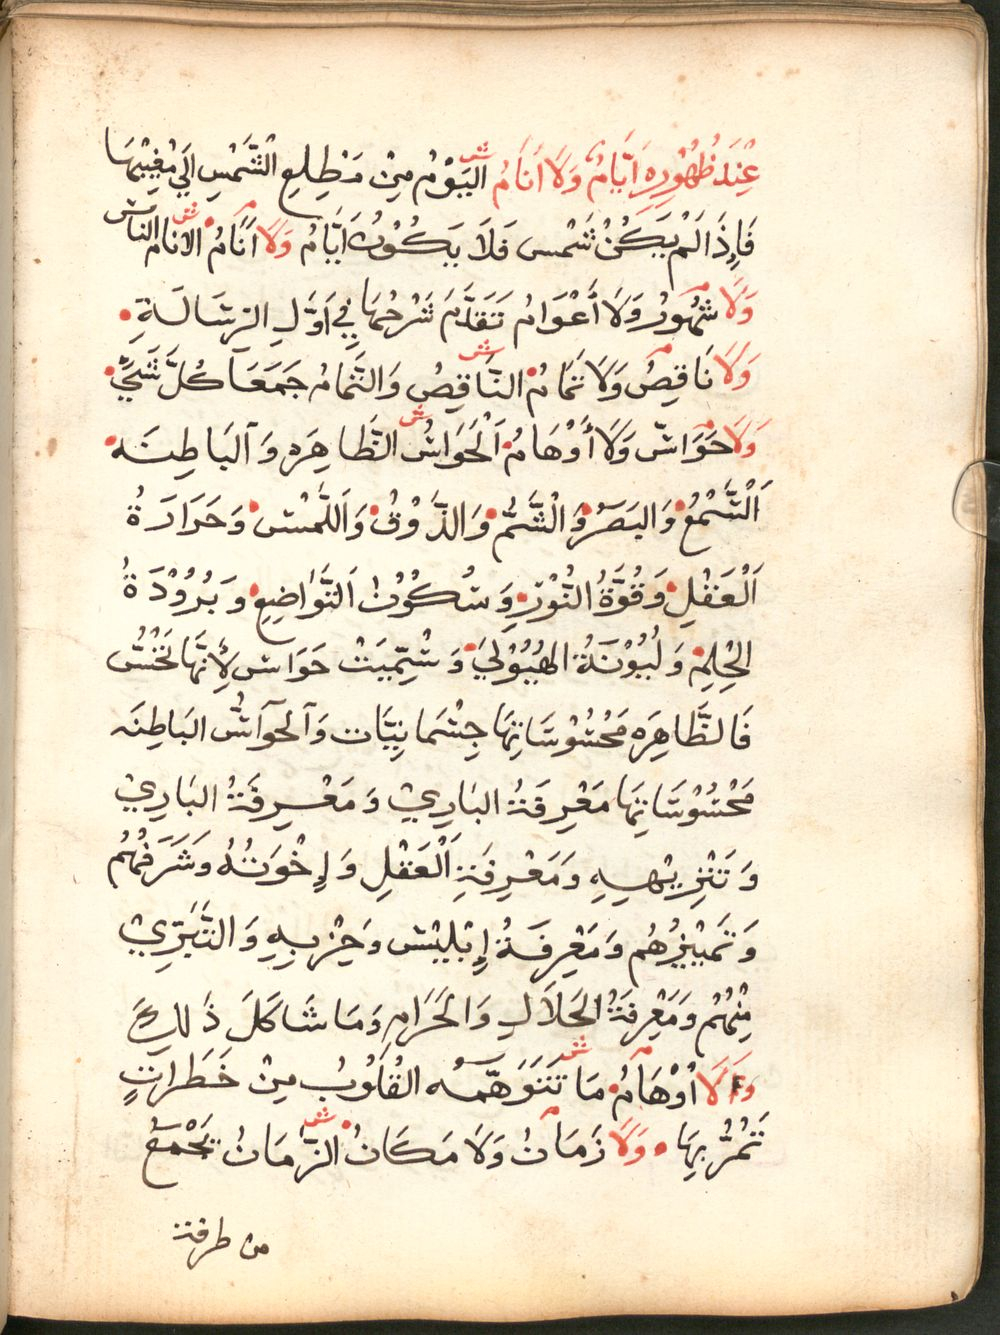 عِنْدَ ظُهُوْرِهِ اَيَّامٌ وَلَا اَنَامُ ش اليَوْمُ مِنْ مَطْلِعِ الشَّمْسِ اِلَي مَغِيْبِهَا
فَاِذَا لَمْ يَكُنْ شَمْس فَلَا يَكُوْنُ اَيَّامُ وَلَا اَنَامُ ش الانام الناس
وَلَا شُهُوْرُ وَلَا أَعْوَامُ تَقَدَّمَ شَرْحُهَا فِي اَوَّلِ الرِّسَالَةِ
وَلَا نَاقِصُ وَلَا تَمَامُ ش النَّاقِصُ وَالتَّمَامُ جَمَعَا كُلَّ شَيْءٍ
وَلَا حَوَاسّ وَلَا أَوْهَامُ ش اَلْحَوَاسُّ الظَّاهِرَه وَالبَاطِنَه
اَلْسَّمْعُ وَالبَصَرُ وَالْشَّمُّ وَالذَّوْقُ وَاَللَّمْسْ وَحَرَارَةُ
اَلْعَقْلِ وَقُوَّةُ النُّوْرِ وَسُكُوْنُ التَّوَاضِعِ وَبُرُوْدَةُ
الحْلِمِ وَلُيُوْنَةُ الهُيُوْلَي وَسُمِّيَتْ حَوَاس لِأَنَّهَا تَحْسُّ
فَالظَّاهِرَه مَحْسُوْسَاتِهَا جِسْمَانِيَّات وَالحَوآسُّ البَاطِنَه
مَحْسُوْسَاتِهَا مَعْرِفَةُ البَارِيْ وَمَعْرِفَةُ البَارِيْ
وَتَنْزِيْهِهِ وَمَعْرِفَةِ اَلْعَقْلِ وَاِخْوَتُهُ وَشَرَفُهُمْ
وَتَمْيِيْزُهُم وَمَعْرِفَةُ اِبْلِيْسْ وَحِزْبِهِ وَالتَّبَرِّيْ
مِنْهُمْ وَمَعْرِفَةُ الحَلَالِ وَالحَرَامِ وَمَا شَاكَلَ ذَٰلِكَ
وَلَا اُوْهَامُ ش مَا تَتَوَهَّمُه القُلُوْبُ مِنْ خَطَرَاتٍ
تَمُرُّ بِهَا وَلَا زَمَانُ وَلَا مَكَانُ ش الزَّمَانُ يَجْمَعُ
من طرفة